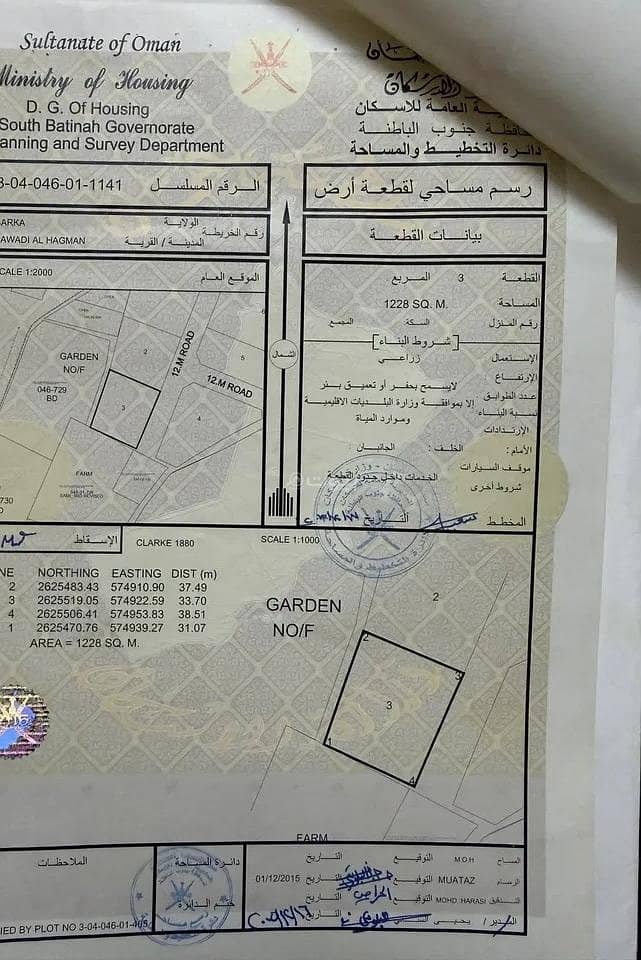 Sultanate of Oman
Ministry of Housing
D. G. Of Housing
South Batinah Governorate
anning and Survey Department
العامة للاسكان
محافظة جنوب الباطنة
دائرة التخطيط والمساحة
3-04-046-01-1141 الرقم المسلسل
رسم مساحي لقطعة أرض
ARKA الولاية
رقم الخريطة
AWADI AL HAGMAN المدينة / القرية
بيانات القطعة
CALE 1:2000 الموقع العام
القطعة 3 المربع
المساحة: 1228 SQ. M.
رقم المنزل السكة المجمع
شروط البناء
الإستعمال زراعي
الإرتفاع:
عدد الطوابق
نسبة البناء:
الإرتدادات
لايسمح بحفر أو تعميق بئر
إلا بموافقة وزارة البلديات الاقليمية
وموارد المياة
الأمام: الخلف: الجانبان:
موقف السيارات
الخدمات داخل حدود القطعة
شروط أخرى
المخطط التاريخ
الشمال
GARDEN
NO/F
046-729
BD
12.M ROAD
12.M ROAD
2
3
4
5
6
FARM
730
الإسقاط CLARKE 1880 SCALE 1:1000
NE NORTHING EASTING DIST (m)
2 2625483.43 574910.90 37.49
3 2625519.05 574922.59 33.70
4 2625506.41 574953.83 38.51
1 2625470.76 574939.27 31.07
AREA = 1228 SQ. M.
GARDEN
NO/F
2
2
3
3
1
4
FARM
الملاحظات
دائرة المساحة
ختم الدائرة
المساح M.O.H التوقيع التاريخ
الرسام MUATAZ التوقيع التاريخ 01/12/2015
التدقيق MOHD. HARASI التوقيع التاريخ
المدير / يحيى
NED BY PLOT NO 3-04-046-01-405